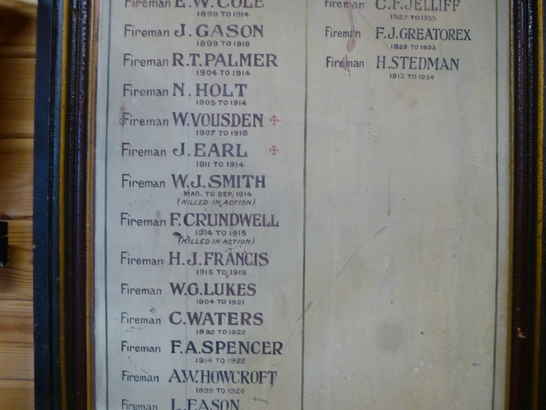 Fireman E.W. COLE
1899 TO 1914
Fireman J. GASON
1899 TO 1919
Fireman R.T. PALMER
1904 TO 1914
Fireman N. HOLT
1905 TO 1914
Fireman W. VOUSDEN
1907 TO 1916
Fireman J. EARL
1911 TO 1914
Fireman W.J. SMITH
MAR. TO SEP. 1914
(KILLED IN ACTION)
Fireman F. CRUNDWELL
1914 TO 1915
(KILLED IN ACTION)
Fireman H.J. FRANCIS
1915 TO 1919
Fireman W.G. LUKES
1904 TO 1921
Fireman C. WATERS
1892 TO 1922
Fireman F.A. SPENCER
1914 TO 1922
Fireman A.W. HOWCROFT
1899 TO 1920
Fireman L. EASON
Fireman C.F. JELLIFF
1927 TO 1933
Fireman F.J. GREATOREX
1928 TO 1933
Fireman H. STEDMAN
1913 TO 1934